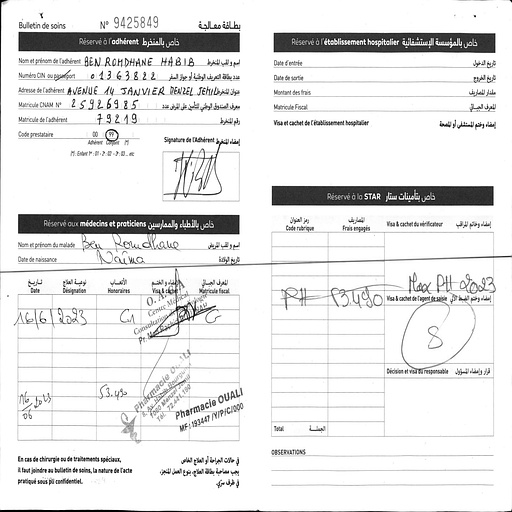 Bulletin de soins N° 9425849 بطاقة معالجة
Réservé à l'adhérent خاص بالمنخرط
Nom et prénom de l'adhérent BEN ROMDHANE HABIB اسم و لقب المنخرط
Numéro CIN ou passeport 01363822 عدد بطاقة التعريف الوطنية أو جواز السفر
Adresse de l'adhérent AVENUE 14 JANVIER DENZEL JEMIL عنوان المنخرط
Matricule CNAM N° 25926985
Matricule de l'adhérent 79219 رقم المنخرط
Code prestataire 00 99
Adhérent Conjoint (*)
(*). Enfant 1er : 01 - 2 : 02 - 3 : 03 ... etc
Signature de l'Adhérent إمضاء المنخرط
Réservé aux médecins et praticiens خاص بالأطباء والممارسين
Nom et prénom du malade Ben Romdhane اسم و لقب المريض
Date de naissance Naima تاريخ الولادة
تاريخ نوعية العلاج الأتعاب الإمضاء و الختم المعرف الجبائي
Date Désignation Honoraires Visa & cachet Matricule fiscal
16/6/2023 G1
Centre Médical
16/06/2023 53.490
Pharmacie OUALI
Pharmacie OUALI
MF: 193447 /Y/P/C/000
En cas de chirurgie ou de traitements spéciaux,
il faut joindre au bulletin de soins, la nature de l'acte
pratiqué sous pli confidentiel.
في حالات الجراحة أو العلاج الخاص
يجب مصاحبة بطاقة العلاج، بنوع العمل المنجز،
في ظرف سري.
Réservé à l'établissement hospitalier خاص بالمؤسسة الإستشفائية
Date d'entrée تاريخ الدخول
Date de sortie تاريخ الخروج
Montant des frais مقدار المصاريف
Matricule Fiscal المعرف الجبائي
Visa et cachet de l'établissement hospitalier إمضاء وختم المستشفى أو المصحة
Réservé à la STAR خاص بتأمينات ستار
رمز العنوان المصاريف
Code rubrique Frais engagés Visa & cachet du vérificateur إمضاء وختم المراقب
PH 53.490 Max PH 2023
Visa & cachet de l'agent de saisie
S
Décision et visa du responsable قرار وإمضاء المسؤول
Total الجملة
OBSERVATIONS